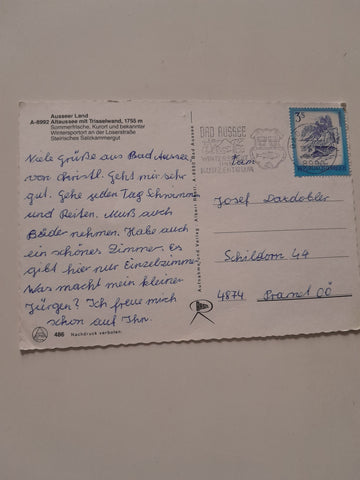 Ausseer Land
A-8992 Altaussee mit Trisselwand, 1755 m
Sommerfrische, Kurort und bekannter
Wintersportort an der Loserstraße
Steirisches Salzkammergut
Viele Grüße aus Bad Aussee
von Christl. Gehts mir sehr
gut. Gehe jeden Tag Schwimmen
und Reiten. Muß auch
Bäder nehmen. Habe auch
ein schönes Zimmer. Es
gibt hier nur Einzelzimmer
Was macht mein kleiner
Jürgen? Ich freue mich
schon auf Ihn.
486 Nachdruck verboten.
BAD AUSSEE
KURZENTRUM
3 S
Fam
Josef Dardobler
Schildorn 44
4874 Pramet OÖ